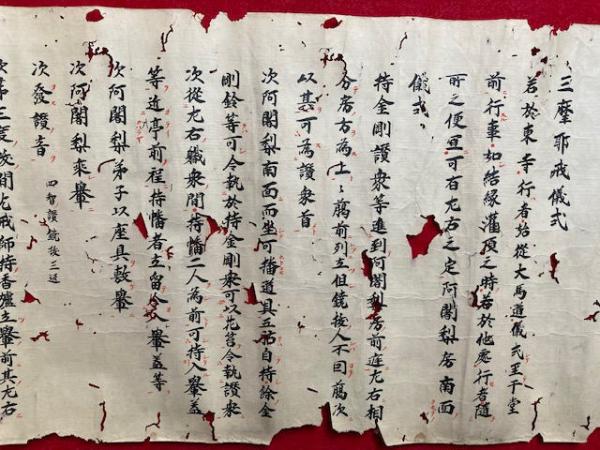 三摩耶戒儀式
若於東寺行者始從大馬道儀式至于堂
前行事如結縁灌頂之時若於他處行者隨
所之便宜可右左右之定阿闍梨房南面
儀式
持金剛讃衆等進到阿闍梨房前遊左右相
分房方為上﨟前列立但鐃持人不回﨟次
以甚可為讃衆首
次阿闍梨南面而坐可播道具五 自持
剛鈴等可令執於持金剛衆可以花筥令執讃衆
次從左右職衆間持幡二人為前可持入轝蓋
等近亭前 持幡者立留 入轝蓋等
次阿闍梨弟子以座具敷轝
次阿闍梨乘轝
次發讃音 四智讃鐃後三返
次第三度 間 戒師持香爐立轝前其左右